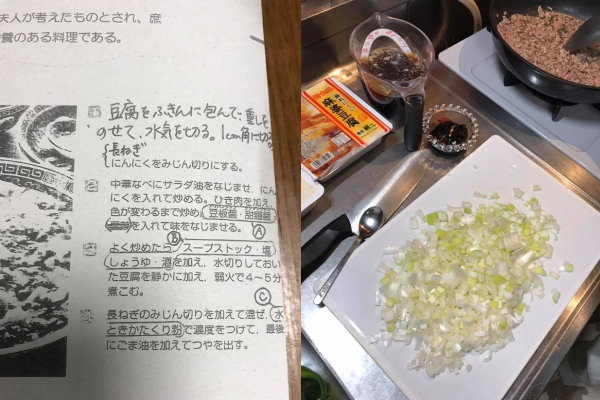 夫人が考えたものとされ、庶
養のある料理である。
豆腐をふきんに包んで重しを
のせて、水気を切る。1cm角に切る
長ねぎ
にんにくをみじん切りにする。
中華なべにサラダ油をなじませ、にん
にくを入れて炒める。ひき肉を加え、
色が変わるまで炒め、豆板醤・甜麺醤
を入れて味をなじませる。
A
B
よく炒めたら、スープストック・塩
しょうゆ・酒を加え、水切りしておい
た豆腐を静かに加え、弱火で4〜5分
煮こむ。
C
長ねぎのみじん切りを加えて混ぜ、水
ときかたくり粉で濃度をつけて、最後
にごま油を加えてつやを出す。
麻婆豆腐